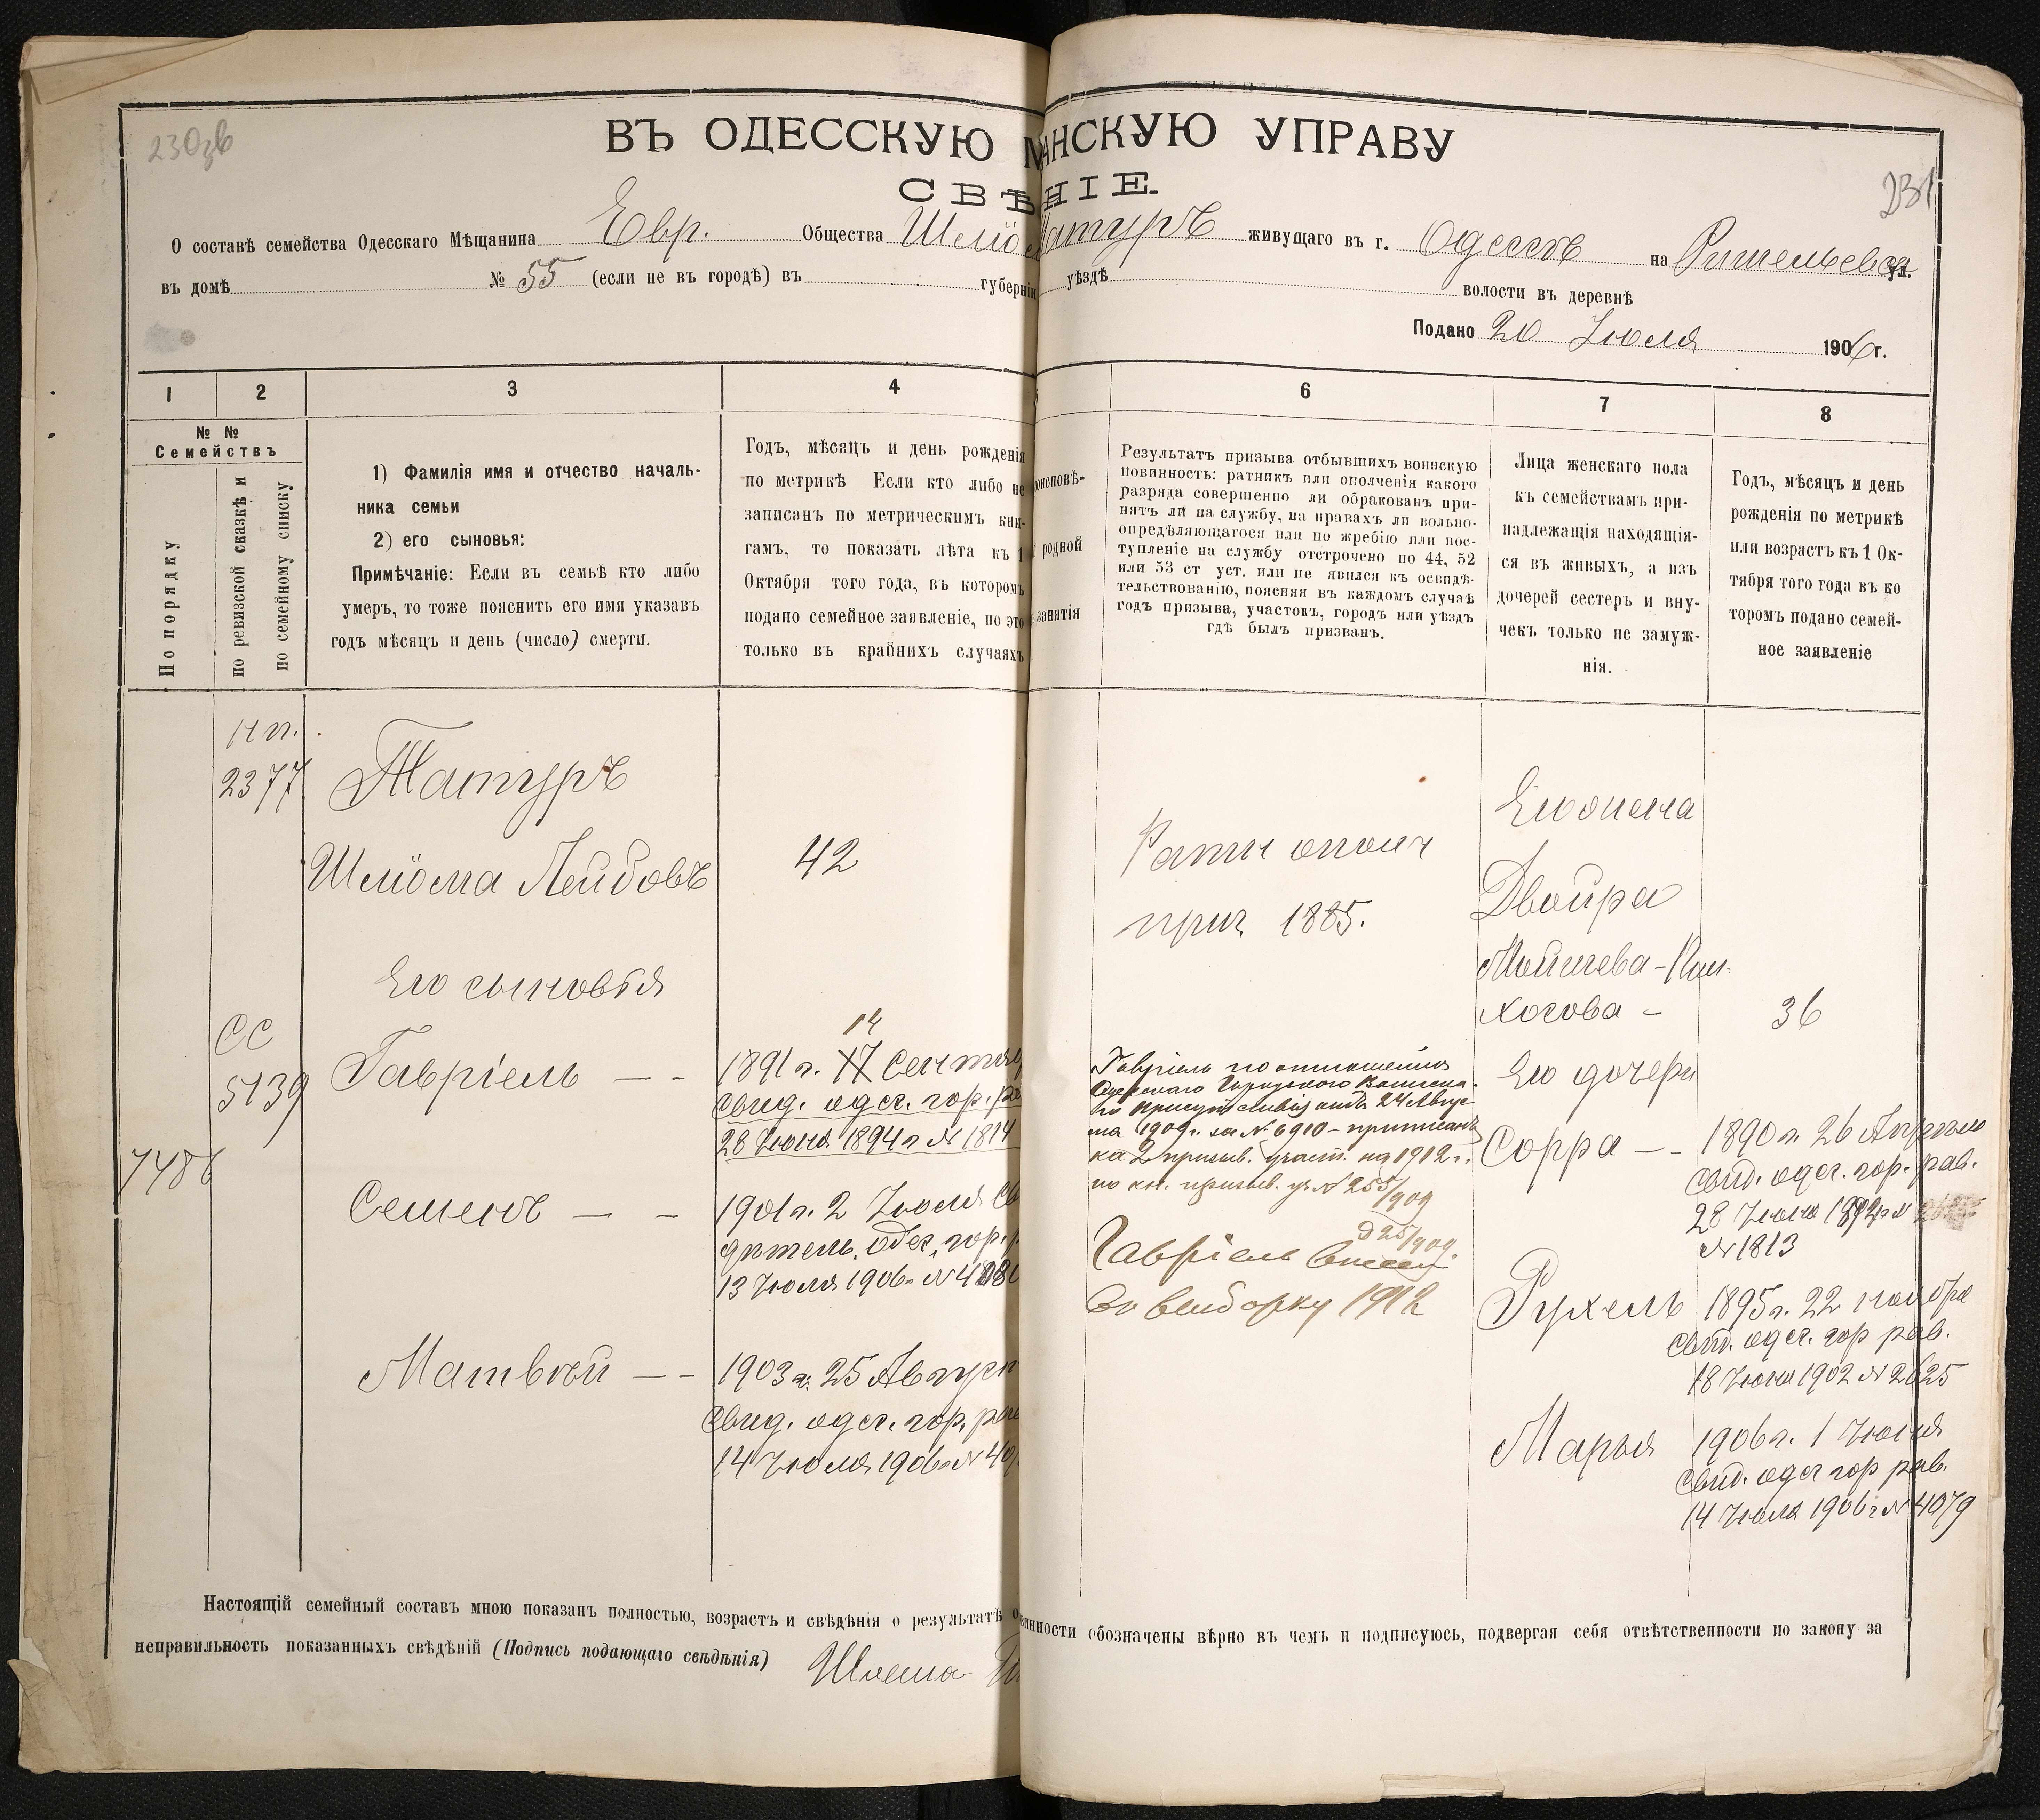 230зв
231
ВЪ ОДЕССКУЮ М АНСКУЮ УПРАВУ
СВѢ НІЕ.
О составѣ семейства Одесскаго Мѣщанина Евр. Общества Шліо Татуръ живущаго въ г. Одессѣ на Ришельевск ул.
въ домѣ № 55 (если не въ городѣ) въ губерніи уѣздѣ волости въ деревнѣ
Подано 20 Іюля 1906 г.
1 2 3 4 6 7 8
№ №
Семействъ
По порядку
по ревизской сказкѣ и
по семейному списку
1) Фамилія имя и отчество началь-
ника семьи
2) его сыновья:
Примѣчаніе: Если въ семьѣ кто либо
умеръ, то тоже пояснить его имя указавъ
годъ мѣсяцъ и день (число) смерти.
Годъ, мѣсяцъ и день рожденія
по метрикѣ Если кто либо не
записанъ по метрическимъ кни-
гамъ, то показать лѣта къ 1
Октября того года, въ которомъ
подано семейное заявленіе, но это
только въ крайнихъ случаяхъ
роисповѣ-
родной
занятія
Результатъ призыва отбывшихъ воинскую
повинность: ратникъ или ополченія какого
разряда совершенно ли обракованъ при-
нятъ ли на службу, на правахъ ли вольно-
опредѣляющагося или по жребію или пос-
тупленіе на службу отстрочено по 44, 52
или 53 ст уст. или не явился къ освидѣ-
тельствованію, поясняя въ каждомъ случаѣ
годъ призыва, участокъ, городъ или уѣздъ
гдѣ былъ призванъ.
Лица женскаго пола
къ семействамъ при-
надлежащія находящія-
ся въ живыхъ, а изъ
дочерей сестеръ и вну-
чекъ только не замуж-
нія.
Годъ, мѣсяцъ и день
рожденія по метрикѣ
или возрастъ къ 1 Ок-
тября того года въ ко
торомъ подано семей-
ное заявленіе
2377
Татуръ
Шліома Лейбовъ
42
Его сыновья
СС
5139
7486
Гавріель — -
14
1891 г. 17 Сентяб
Свид. одес. гор. ра
28 Іюня 1894 г № 1814
Семенъ — -
1901 г. 2 Іюля Св
дѣтель. Одес. гор. р
13 Іюля 1906 г №
Матвѣй — -
1903 г. 25 Август
Свид. одес. гор. рав
14 Іюля 1906 г № 40
Ратн ополч
приз 1885.
Гавріель по отношенію
Одесскаго Городского Воинска-
го Присутствія отъ 24 Авгус-
та 1909 г. за № 6910 - приписанъ
ка 2 призыв. участ. на 1912 г.
по кн. призыв. уч № 255/909
д 25/909.
Гавріель внесен
во выборку 1912
Его жена
Двойра
Мойшева-Пин-
хосова -
36
Его дочери
Сорра — -
1890 г. 26 Апрѣля
Свид. одес. гор. рав.
28 Іюня 1892 г №
№ 1813
Рухель
1895 г. 22 ноября
Свид. одес. гор рав.
18 Іюня 1902 № 2625
Марья
1906 г. 1 Іюня
Свид. одес гор рав.
14 Іюля 1906 г № 4079
Настоящій семейный составъ мною показанъ полностью, возрастъ и свѣдѣнія о результатѣ о винности обозначены вѣрно въ чемъ и подписуюсь, подвергая себя отвѣтственности по закону за
неправильность показанныхъ свѣдѣній (Подпись подающаго свѣдѣнія) Шлема